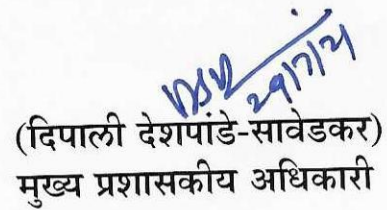 29/7/21
(दिपाली देशपांडे-सावेडकर)
मुख्य प्रशासकीय अधिकारी